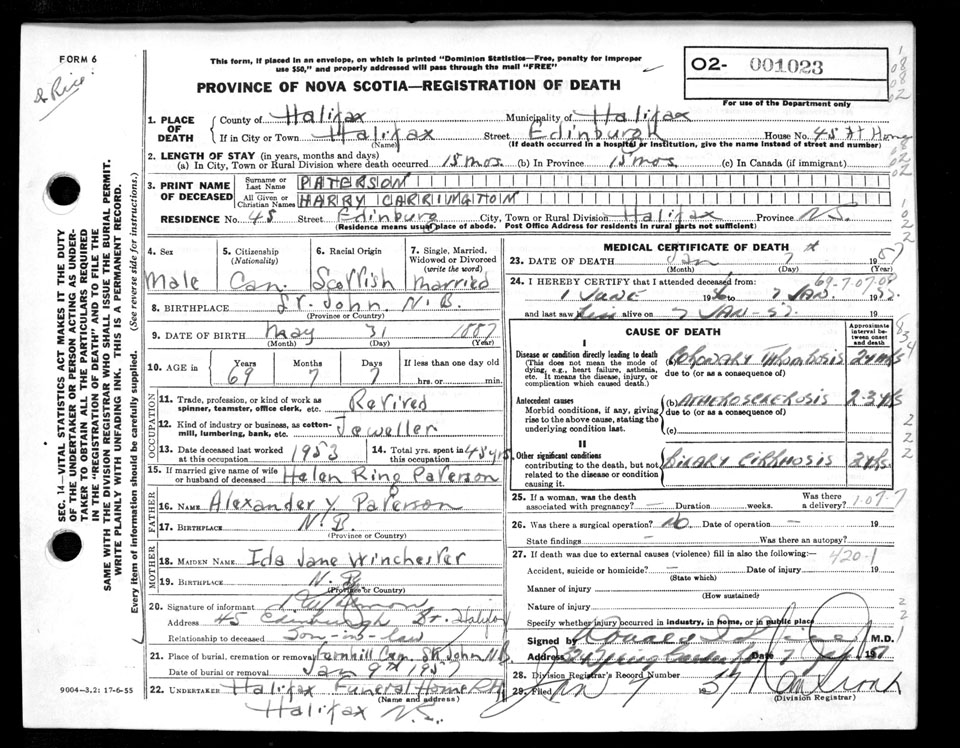 FORM 6
This form, if placed in an envelope, on which is printed "Dominion Statistics—Free, penalty for improper
use $50," and properly addressed will pass through the mail "FREE"
O2- 001023
For use of the Department only
PROVINCE OF NOVA SCOTIA—REGISTRATION OF DEATH
1. PLACE OF DEATH
County of Halifax Municipality of Halifax
If in City or Town Halifax Street Edinburgh House No. 45 At Home
(Name) (If death occurred in a hospital or institution, give the name instead of street and number)
2. LENGTH OF STAY (in years, months and days)
(a) In City, Town or Rural Division where death occurred 18 mos. (b) In Province 18 mos. (c) In Canada (if immigrant)
3. PRINT NAME OF DECEASED
Surname or Last Name PATERSON
All Given or Christian Names HARRY CARRINGTON
RESIDENCE No. 45 Street Edinburg City, Town or Rural Division Halifax Province N.S.
(Residence means usual place of abode. Post Office Address for residents in rural parts not sufficient)
4. Sex Male
5. Citizenship (Nationality) Can.
6. Racial Origin Scottish
7. Single, Married, Widowed or Divorced (write the word) Married
8. BIRTHPLACE St. John N.B.
(Province or Country)
9. DATE OF BIRTH May 31 1887
(Month) (Day) (Year)
10. AGE in Years 69 Months 7 Days 7 If less than one day old
hrs. or min.
OCCUPATION
11. Trade, profession, or kind of work as spinner, teamster, office clerk, etc. Retired
12. Kind of industry or business, as cotton-mill, lumbering, bank, etc. Jeweller
13. Date deceased last worked at this occupation 1953
14. Total yrs. spent in this occupation 45 yrs.
15. If married give name of wife or husband of deceased Helen Ring Paterson
FATHER
16. NAME Alexander Y Paterson
17. BIRTHPLACE N.B.
(Province or Country)
MOTHER
18. MAIDEN NAME Ida Jane Winchester
19. BIRTHPLACE N.B.
(Province or Country)
20. Signature of informant
Address 45 Edinburgh St. Halifax
Relationship to deceased Son-in-law
21. Place of burial, cremation or removal Fernhill Cem. St John NB.
Date of burial or removal Jan 9th 1957
22. UNDERTAKER Halifax Funeral Home
(Name and address)
Halifax N.S.
9004—3.2: 17-6-55
SEC. 14—VITAL STATISTICS ACT MAKES IT THE DUTY
OF THE UNDERTAKER OR PERSON ACTING AS UNDER-
TAKER TO OBTAIN ALL THE PARTICULARS REQUIRED
IN THE "REGISTRATION OF DEATH" AND TO FILE THE
SAME WITH THE DIVISION REGISTRAR WHO SHALL ISSUE THE BURIAL PERMIT.
WRITE PLAINLY WITH UNFADING INK. THIS IS A PERMANENT RECORD.
Every item of information should be carefully supplied. (See reverse side for instructions.)
MEDICAL CERTIFICATE OF DEATH
23. DATE OF DEATH Jan 7 1957
(Month) (Day) (Year)
24. I HEREBY CERTIFY that I attended deceased from:
1 JUNE 1956 to 7 JAN. 1957
and last saw him alive on 7 JAN-57.
CAUSE OF DEATH
Approximate interval between onset and death
I
Disease or condition directly leading to death
(This does not mean the mode of dying, e.g., heart failure, asthenia, etc. It means the disease, injury, or complication which caused death.)
(a) CORONARY THROMBOSIS
due to (or as a consequence of)
Antecedent causes
Morbid conditions, if any, giving rise to the above cause, stating the underlying condition last.
(b) ATHEROSCLEROSIS 2-3 yrs
due to (or as a consequence of)
(c)
II
Other significant conditions
contributing to the death, but not related to the disease or condition causing it.
BILIARY CIRRHOSIS 2 yrs.
25. If a woman, was the death associated with pregnancy? — Duration weeks. Was there a delivery?
26. Was there a surgical operation? No. Date of operation — 19
State findings — Was there an autopsy?
27. If death was due to external causes (violence) fill in also the following:—
420-1
Accident, suicide or homicide? — Date of injury 19
(State which)
Manner of injury
(How sustained)
Nature of injury
Specify whether injury occurred in industry, in home, or in public place
Signed by M.D.
Address Spring Garden Date 7 Jan 57
28. Division Registrar's Record Number
29. Filed Jan 9 1957
(Division Registrar)